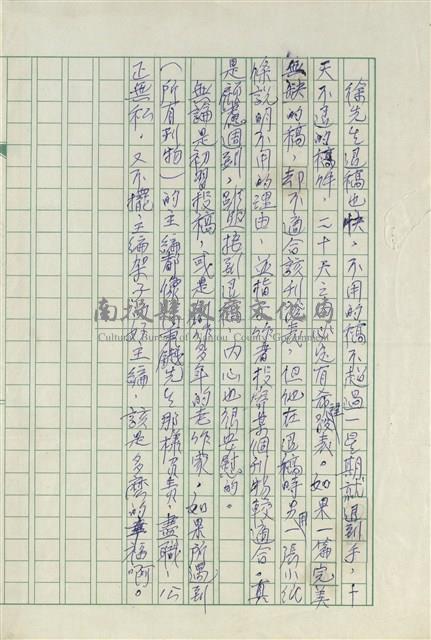 徐先生退稿也快，不用的稿不超過一星期就退到手，十
天不退的稿件，二十天之內必定有希望發表。如果一篇完美
無缺的稿，却不適合該刊發表，但他在退稿時另用一張小紙
條說明不用的理由，並指作者投寄某個刊物較適合。真
是顧慮週到，雖然接到退稿，內心也很安慰的。
無論是初習投稿，或是寫作多年的老作家，如果所遇到
（所有刊物）的主編都像徐先生那樣負責，盡職，公
正無私，又不擺主編架子的好主編，該是多麼的幸福啊。
南投縣政府文化局
Cultural Bureau of Nantou County Government